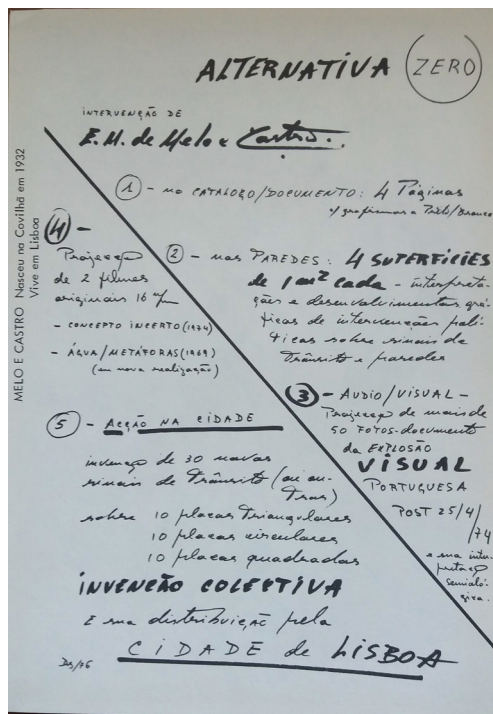 ALTERNATIVA ZERO
INTERVENÇÃO DE
E. M. de Melo e Castro.
MELO E CASTRO Nasceu na Covilhã em 1932
Vive em Lisboa
1 - no CATALOGO/DOCUMENTO: 4 Páginas
c/ grafismos a Preto/Branco
2 - nas PAREDES: 4 SUPERFÍCIES
de 1 m² cada - interpreta-
ções e desenvolvimentos grá-
ficos de intervenções polí-
ticas sobre sinais de
Trânsito e paredes
3 - AUDIO/VISUAL -
Projecção de mais de
50 FOTOS-documento
da EXPLOSÃO
VISUAL
PORTUGUESA
POST 25/4/
/74
e sua inter-
pretação
semioló-
gica.
4 -
Projecção
de 2 filmes
originais 16 m/m
- CONCEPTO INCERTO (1974)
- ÁGUA/METÁFORAS (1969)
(em nova realização)
5 - ACÇÃO NA CIDADE
invenção de 30 novos
sinais de Trânsito (ou ou-
tros)
sobre 10 placas Triangulares
10 placas circulares
10 placas quadradas
INVENÇÃO COLECTIVA
E sua distribuição pela
CIDADE de LISBOA
Dez/76